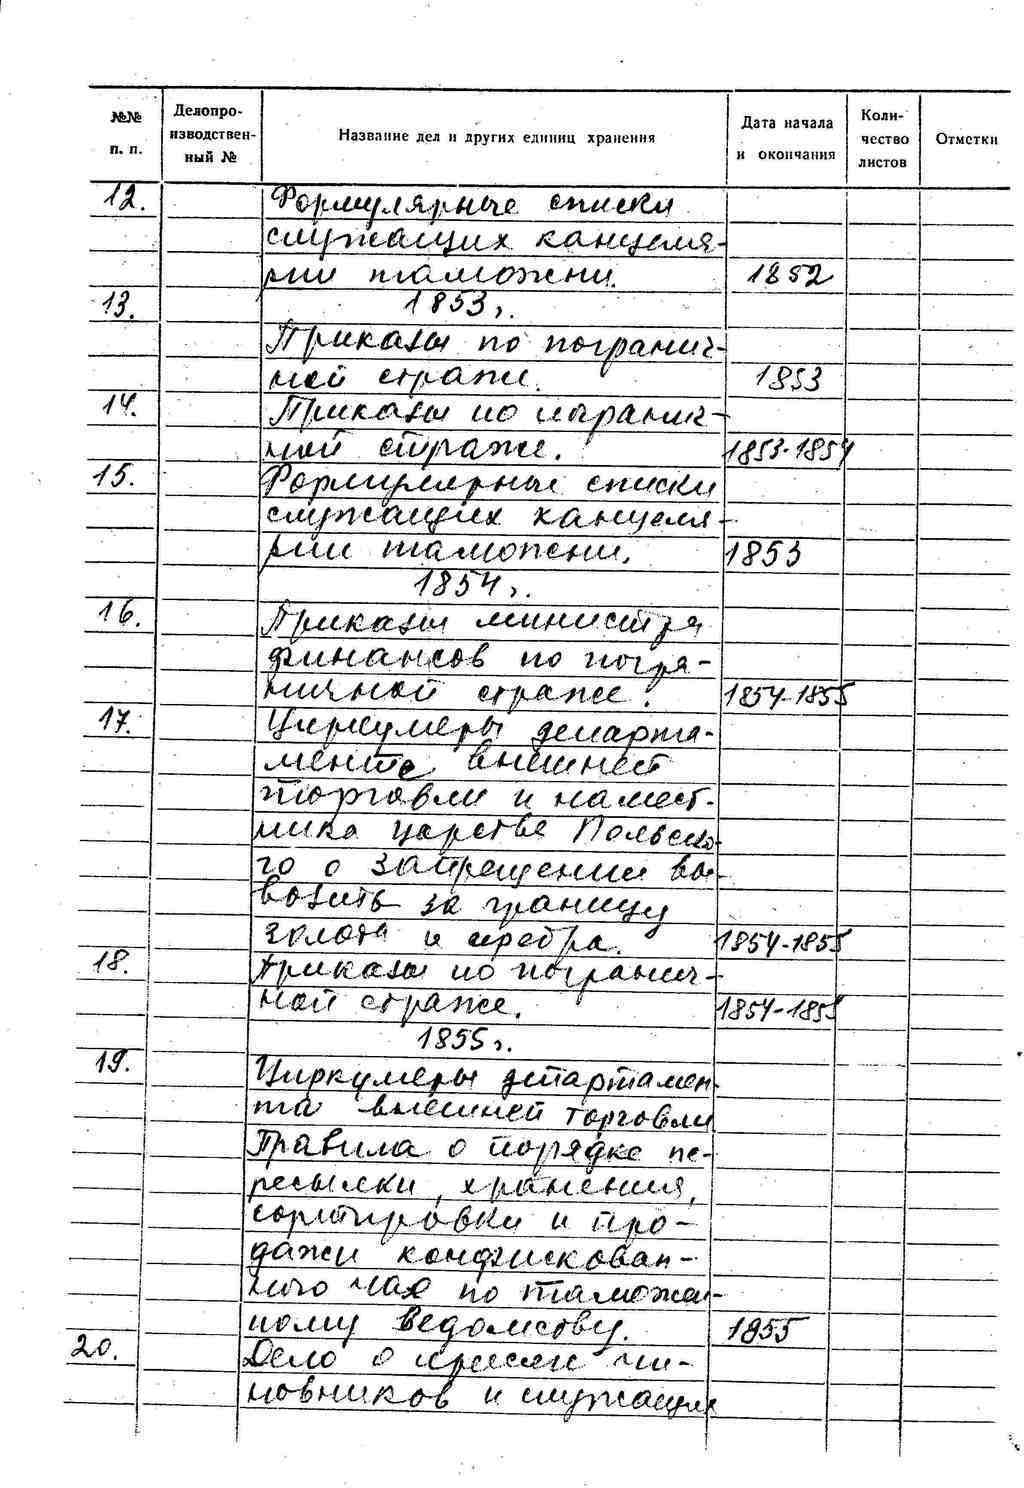 №№ п. п. Делопро-изводствен-ный № Название дел и других единиц хранения Дата начала и окончания Коли-чество листов Отметки
12. Формулярные списки
служащих канцеля-
рии таможни. 1852
1853 г.
13. Приказы по погранич-
ной стражи. 1853
14. Приказы по погранич-
ной страже. 1853-1854
15. Формулярные списки
служащих канцеля-
рии таможни. 1853
1854 г.
16. Приказы министра
финансов по погра-
ничной страже. 1854-1855
17. Циркуляры департа-
мента внешней
торговли и намест-
ника царства Польско-
го о запрещении вы-
возить за границу
золота и серебра. 1854-1855
18. Приказы по погранич-
ной страже. 1854-1855
1855 г.
19. Циркуляры департамен-
та внешней торговли
Правила о порядке пе-
ресылки, хранения,
сортировки и про-
дажи конфискован-
ного чая по таможен-
ному ведомству. 1855
20. Дело о присяге чи-
новников и служащих